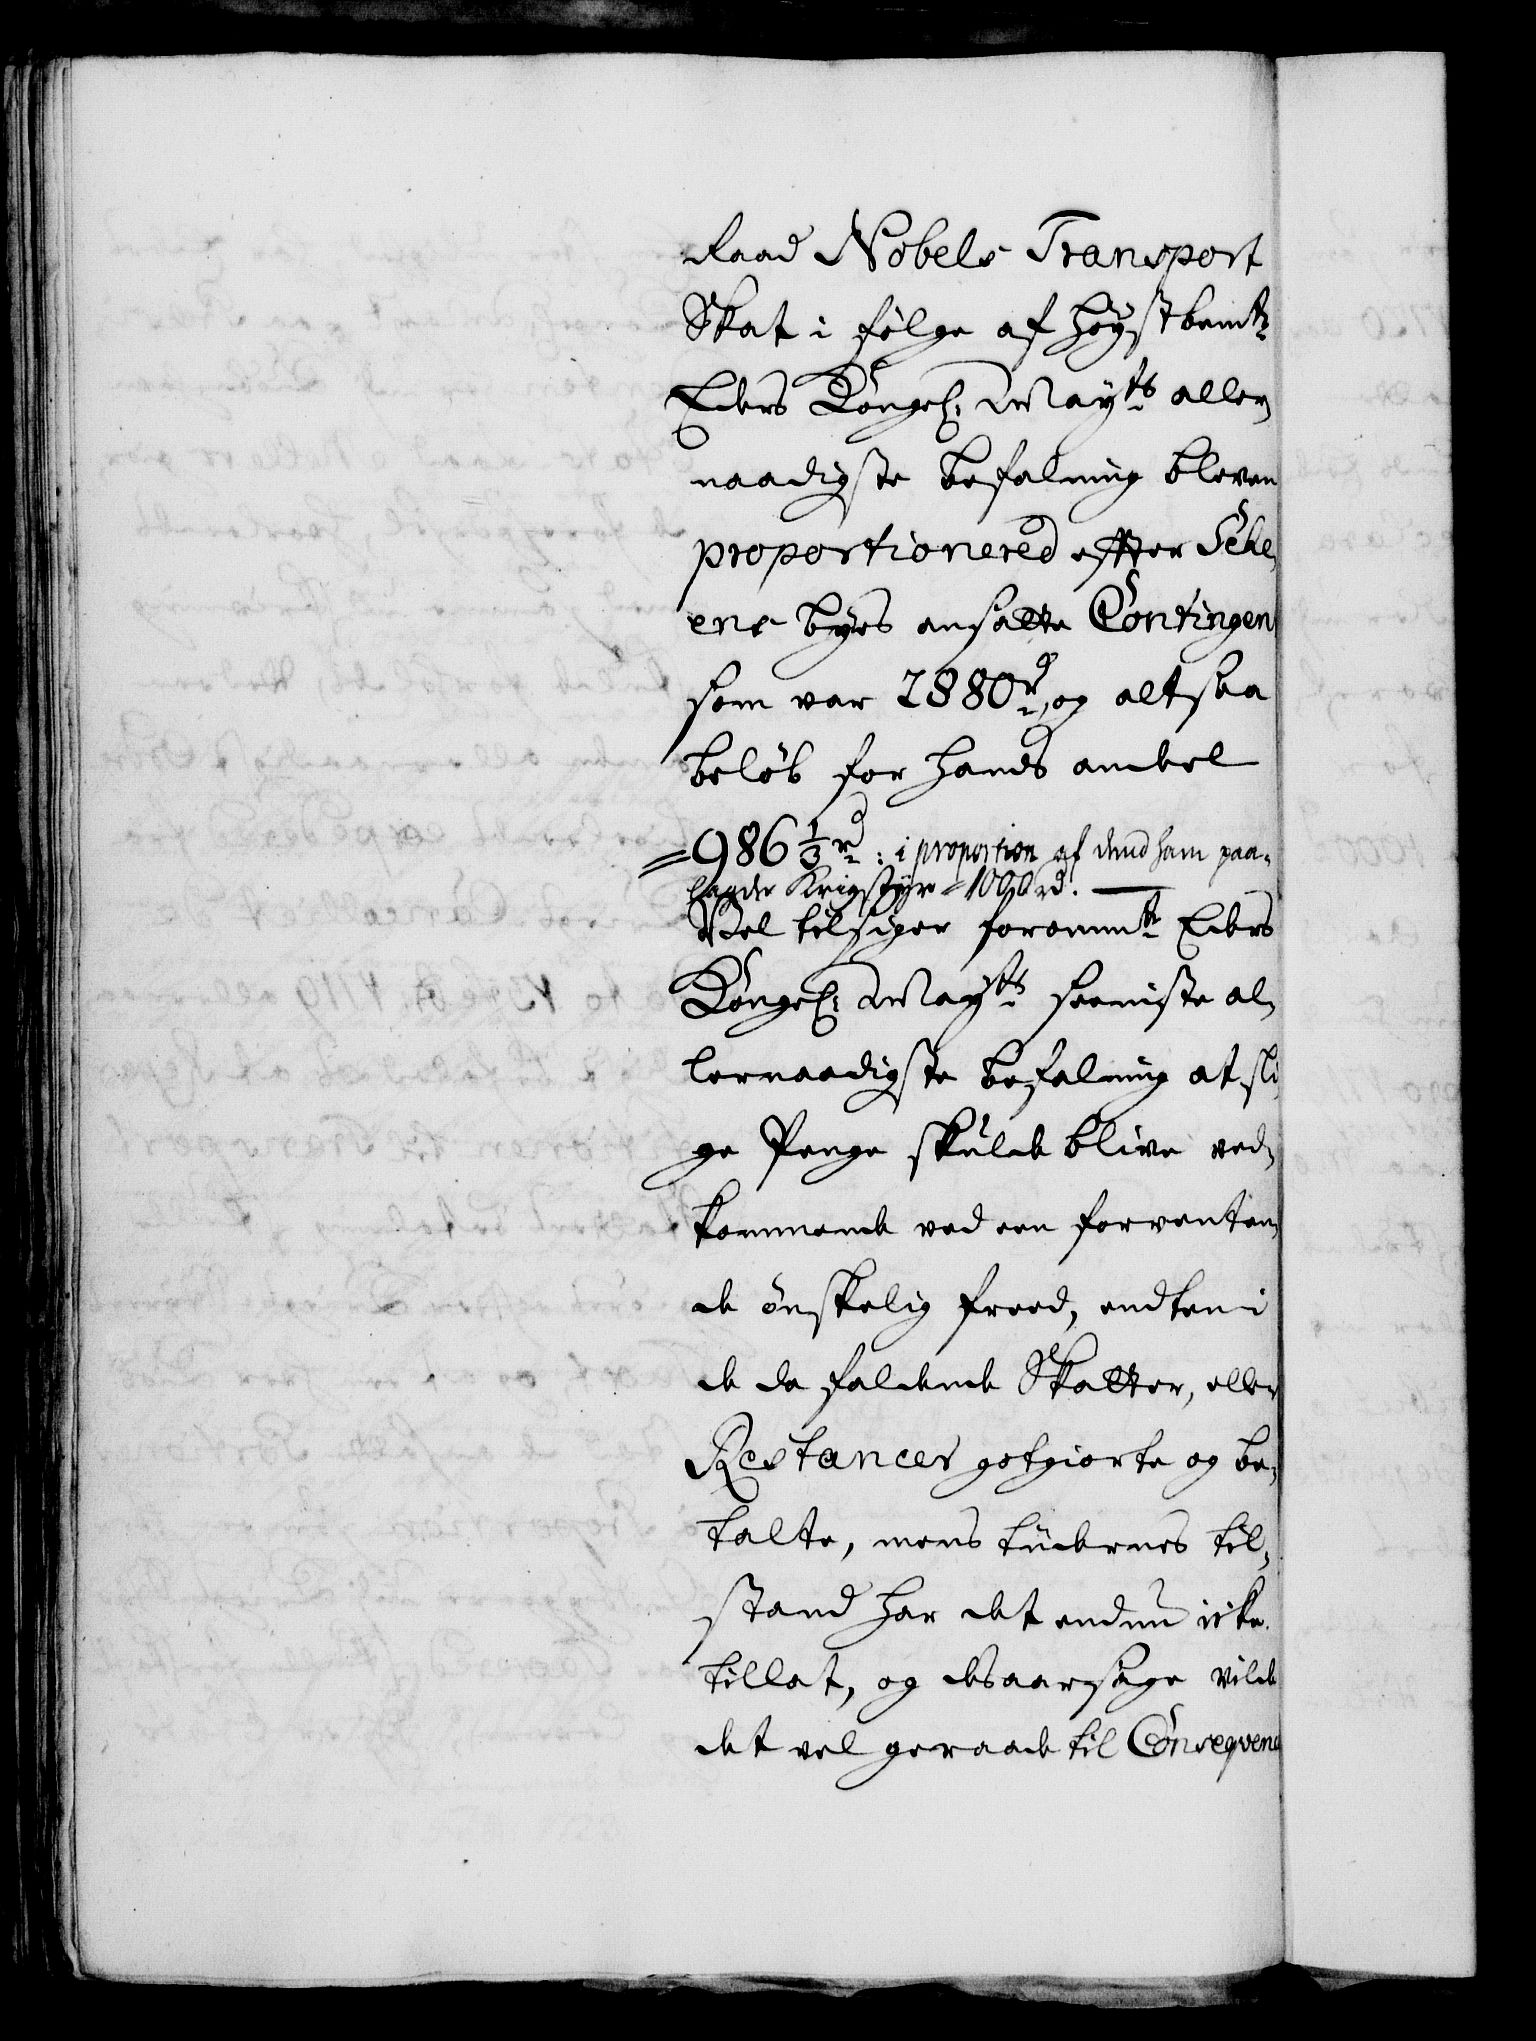 Raad Nobels Transport
Skat i følge af høystbemte
Eders Kongel: Mayts aller
naadigste befalning bleven
proportionered effter Sche
ens byes ansatte Contingent
som var 2880 rd, og altsaa
beløb for hands andeel
986 1/3 rd: i proportion af dend ham paa-
lagde Krigstyr 1000 rd.
Vel tilsiger forommte Eders
Kongel: Mayts seeniste al
lernaadigste befalning at sli
ge Penge skulde blive ved
kommende ved een forventen
de ønskelig freed, endten i
de da faldende Skatter, eller
Restancer gotgiorte og be
talte, mens tiidernes til
stand har det endnu icke
tillat, og desaarsage vilde
det vel geraade til Conseqvence